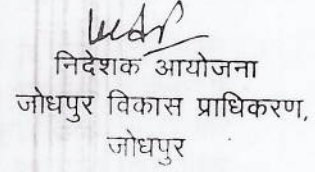 निदेशक आयोजना
जोधपुर विकास प्राधिकरण,
जोधपुर